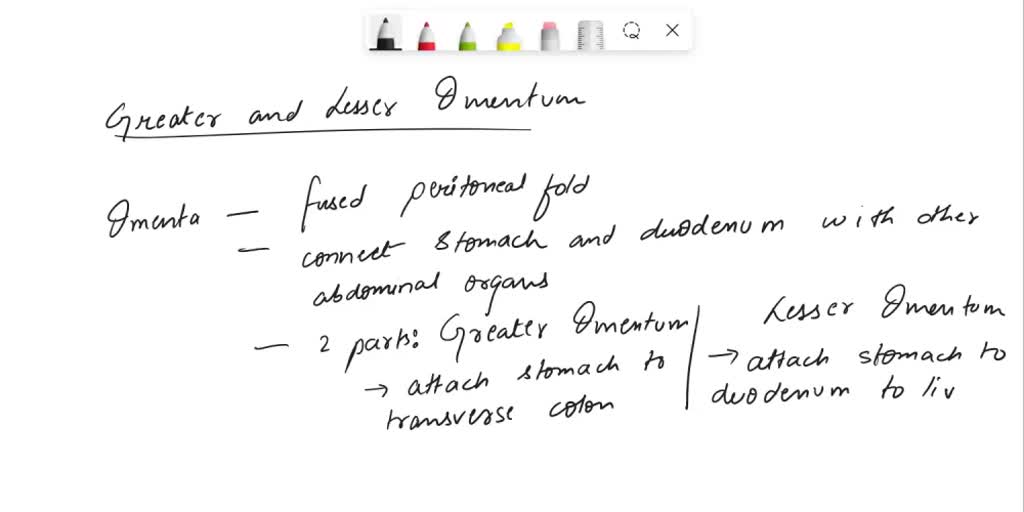 Greater and Lesser Omentum
Omenta — fused peritoneal fold
— connect stomach and duodenum with other
abdominal organs
— 2 parts: Greater Omentum
→ attach stomach to
transverse colon
Lesser Omentum
→ attach stomach to
duodenum to liv